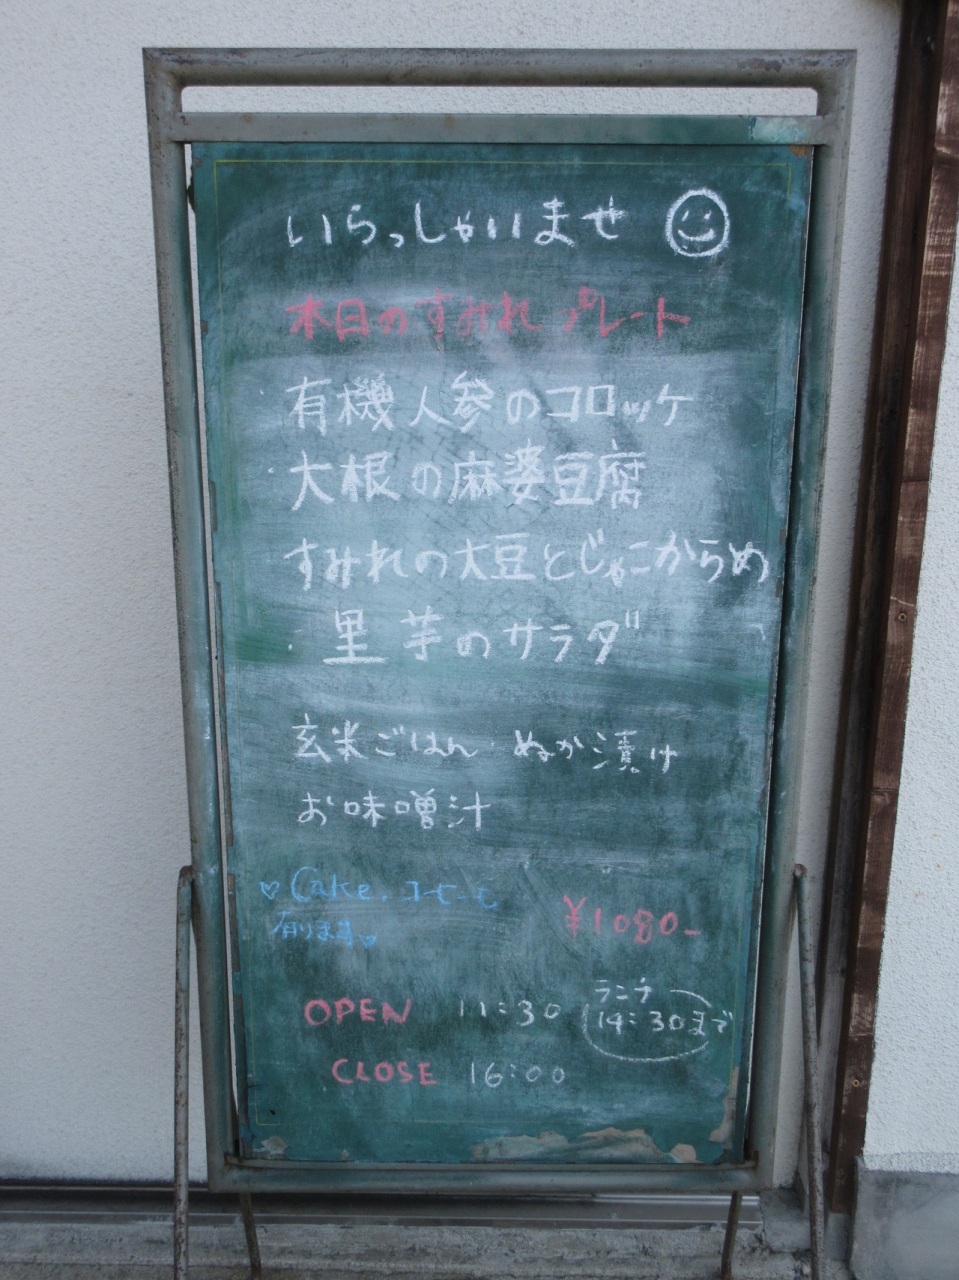 いらっしゃいませ
本日のすみれプレート
・有機人参のコロッケ
・大根の麻婆豆腐
すみれの大豆とじゃこからめ
・里芋のサラダ
玄米ごはん・ぬか漬け
お味噌汁
♡Cake.コーヒーも
有ります♡
¥1080-
OPEN 11:30
ランチ
14:30まで
CLOSE 16:00